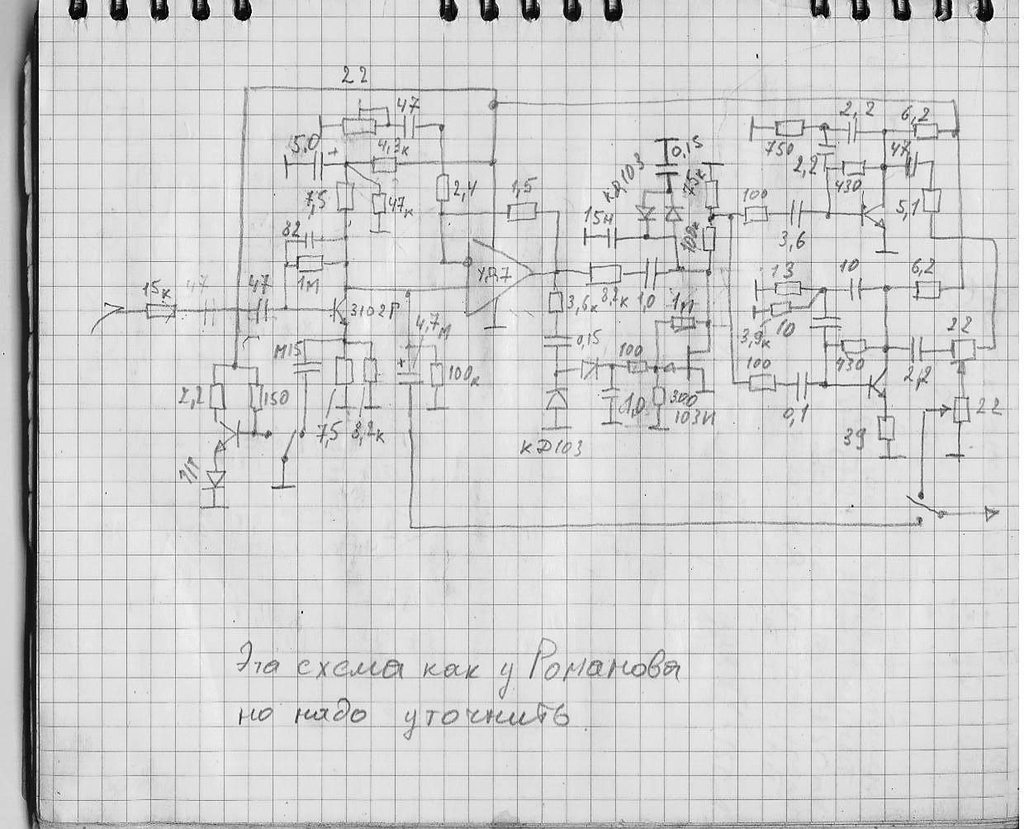 22
47
5.0 +
4,3к
7,5
47к
2,4
1,5
82
1м
15к
47
47
3102Г
УД7
4,7м
+
М15
100к
2,2
150
7,5
8,2к
КД103
0,15
75к
15н
100к
8,2к
10
3,6к
0,15
1м
100
1,0
300
103И
КД103
750
2,2
6,2
2,2
430
47
5,1
100
3,6
13
10
6,2
3,9к
10
430
22
100
0,1
2,2
39
22
Эта схема как у Романова
но надо уточнить